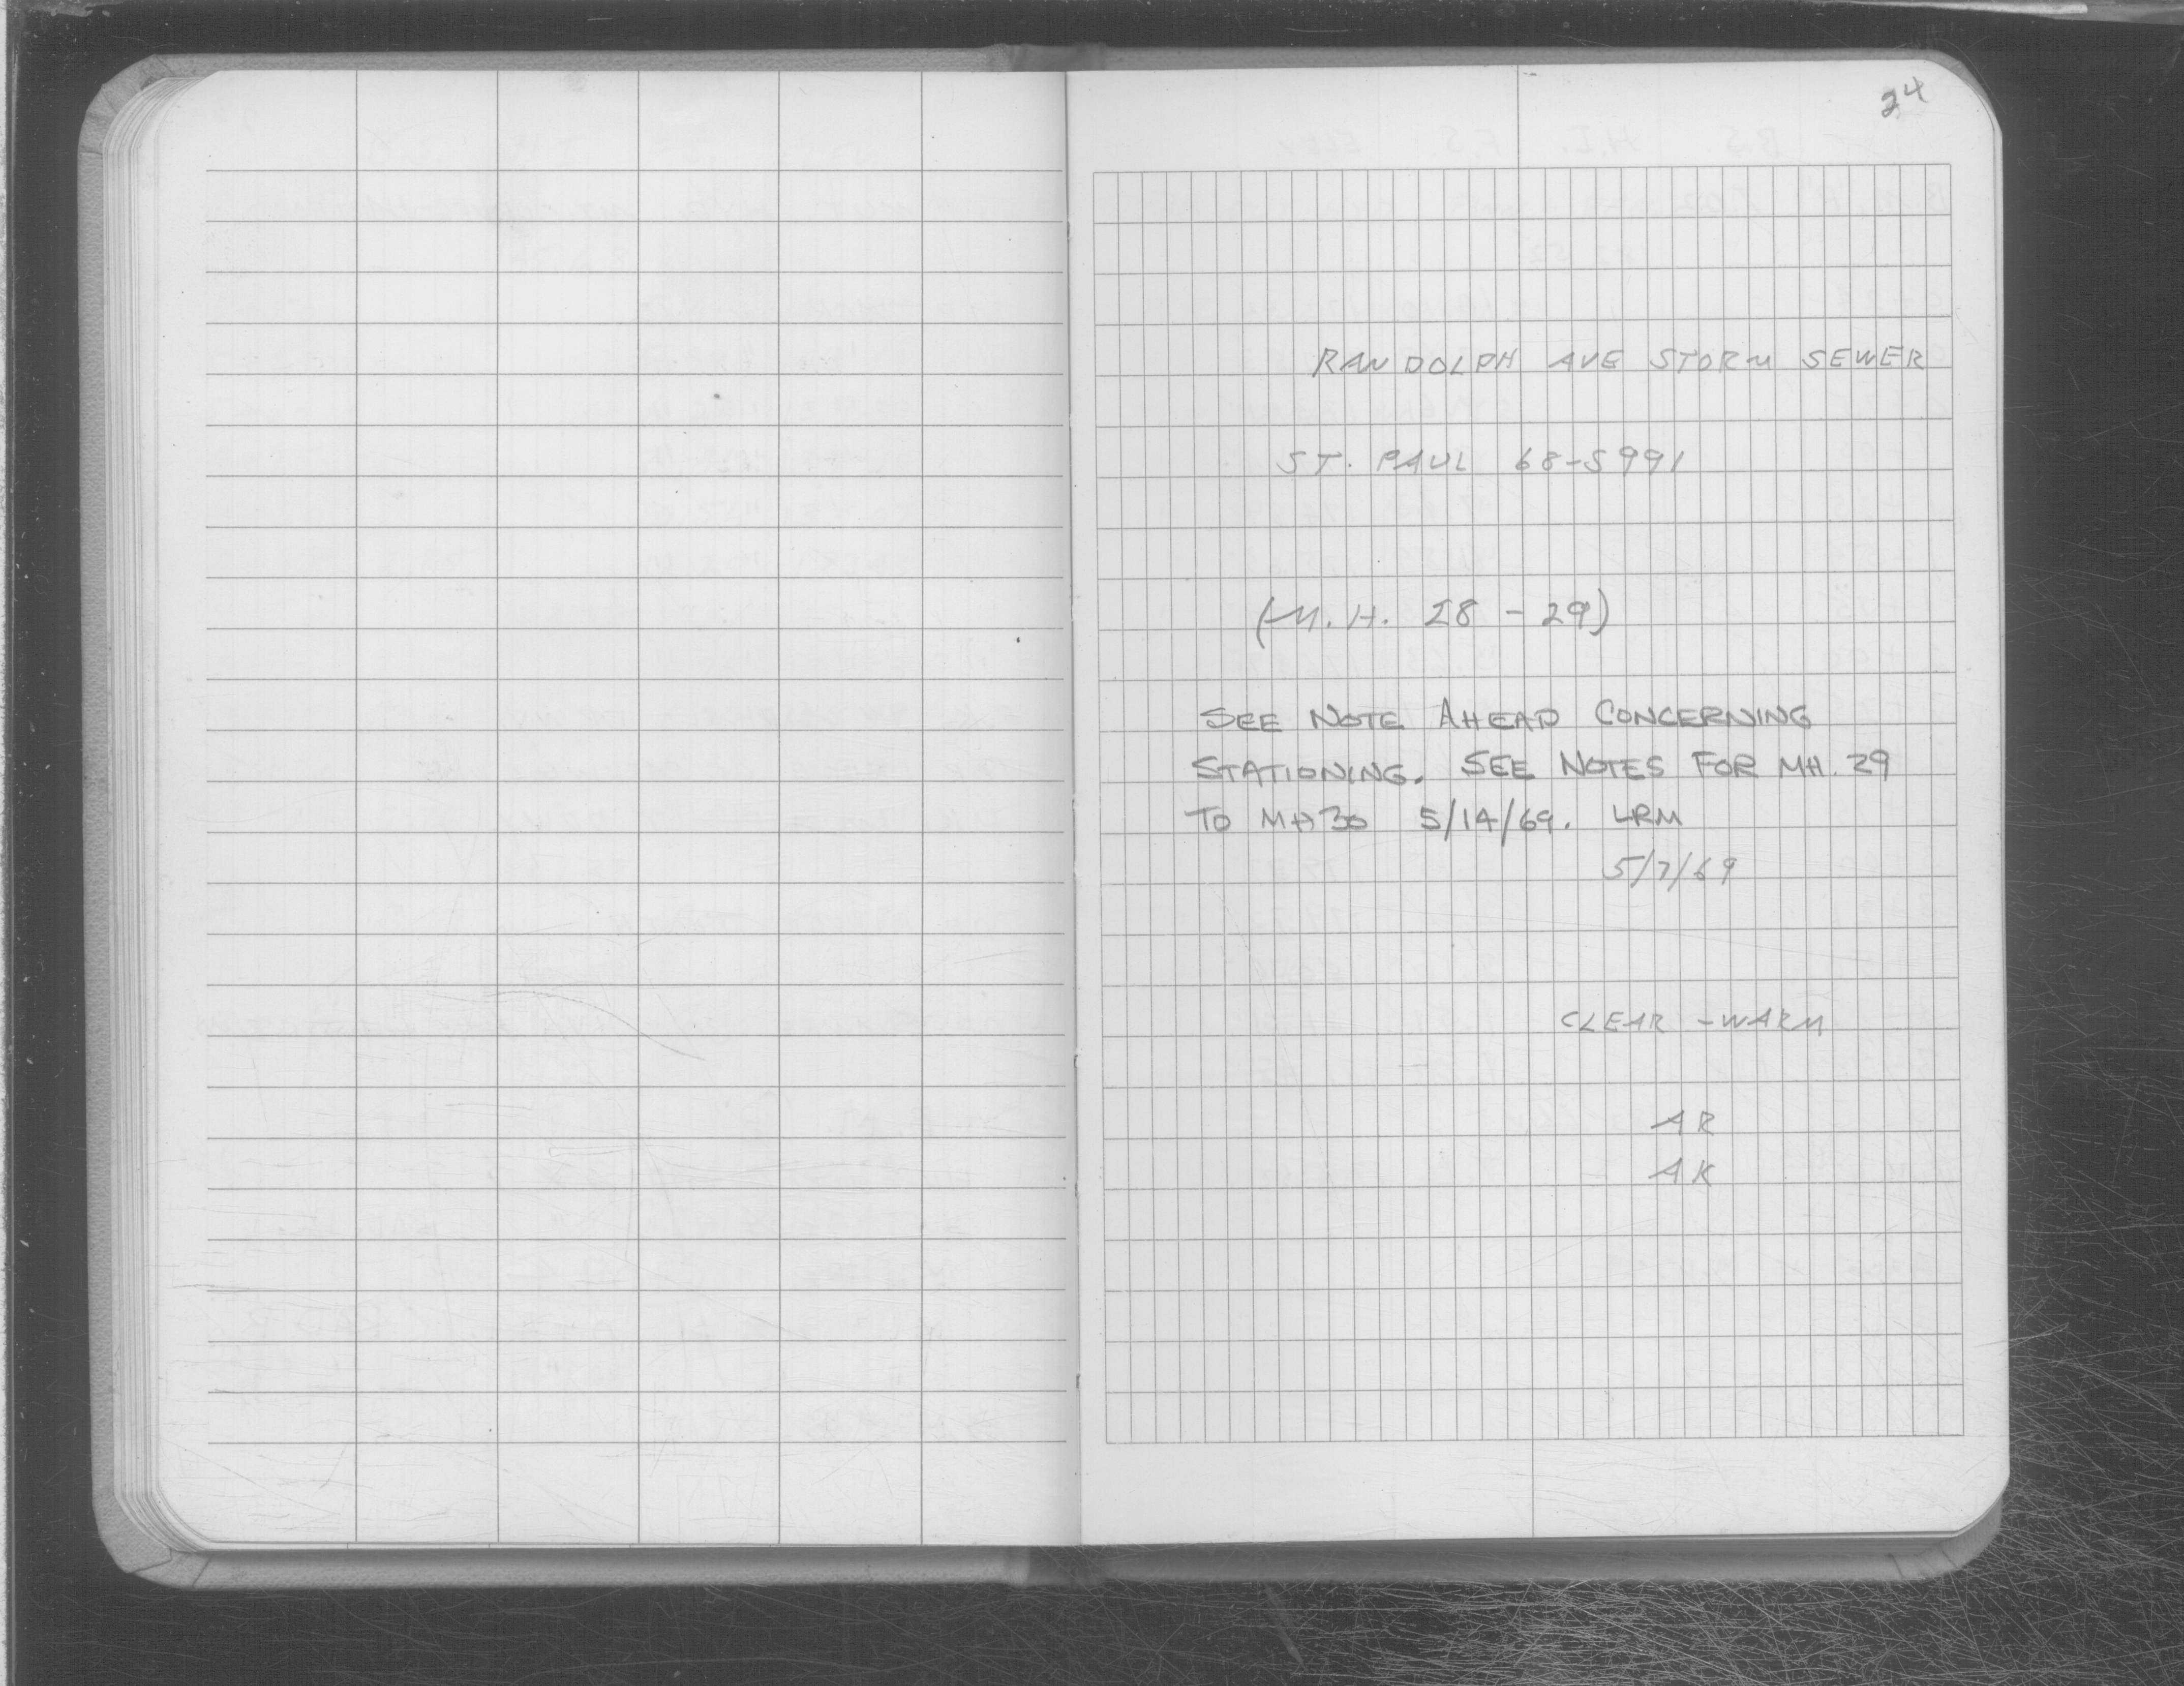 24
RANDOLPH AVE STORM SEWER
ST. PAUL 68-S991
(M.H. 28 - 29)
SEE NOTE AHEAD CONCERNING
STATIONING. SEE NOTES FOR MH. 29
TO MH30 5/14/69. LRM
5/7/69
CLEAR - WARM
AR
AK